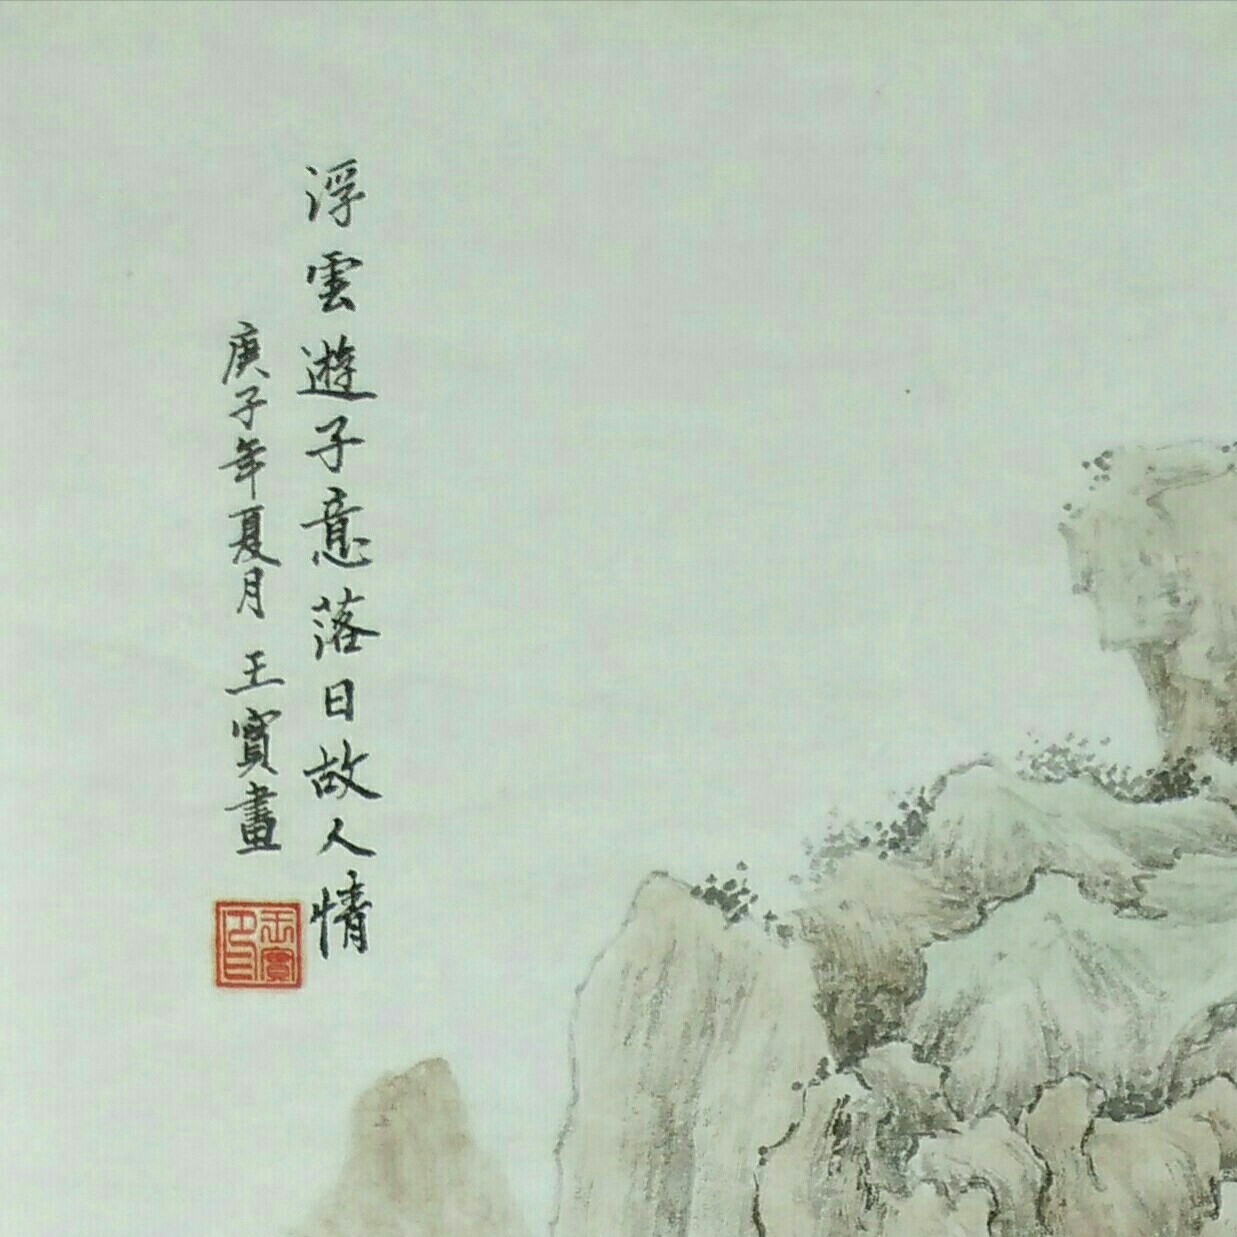 浮雲遊子意落日故人情
庚子年夏月王寳畫
王寳
印